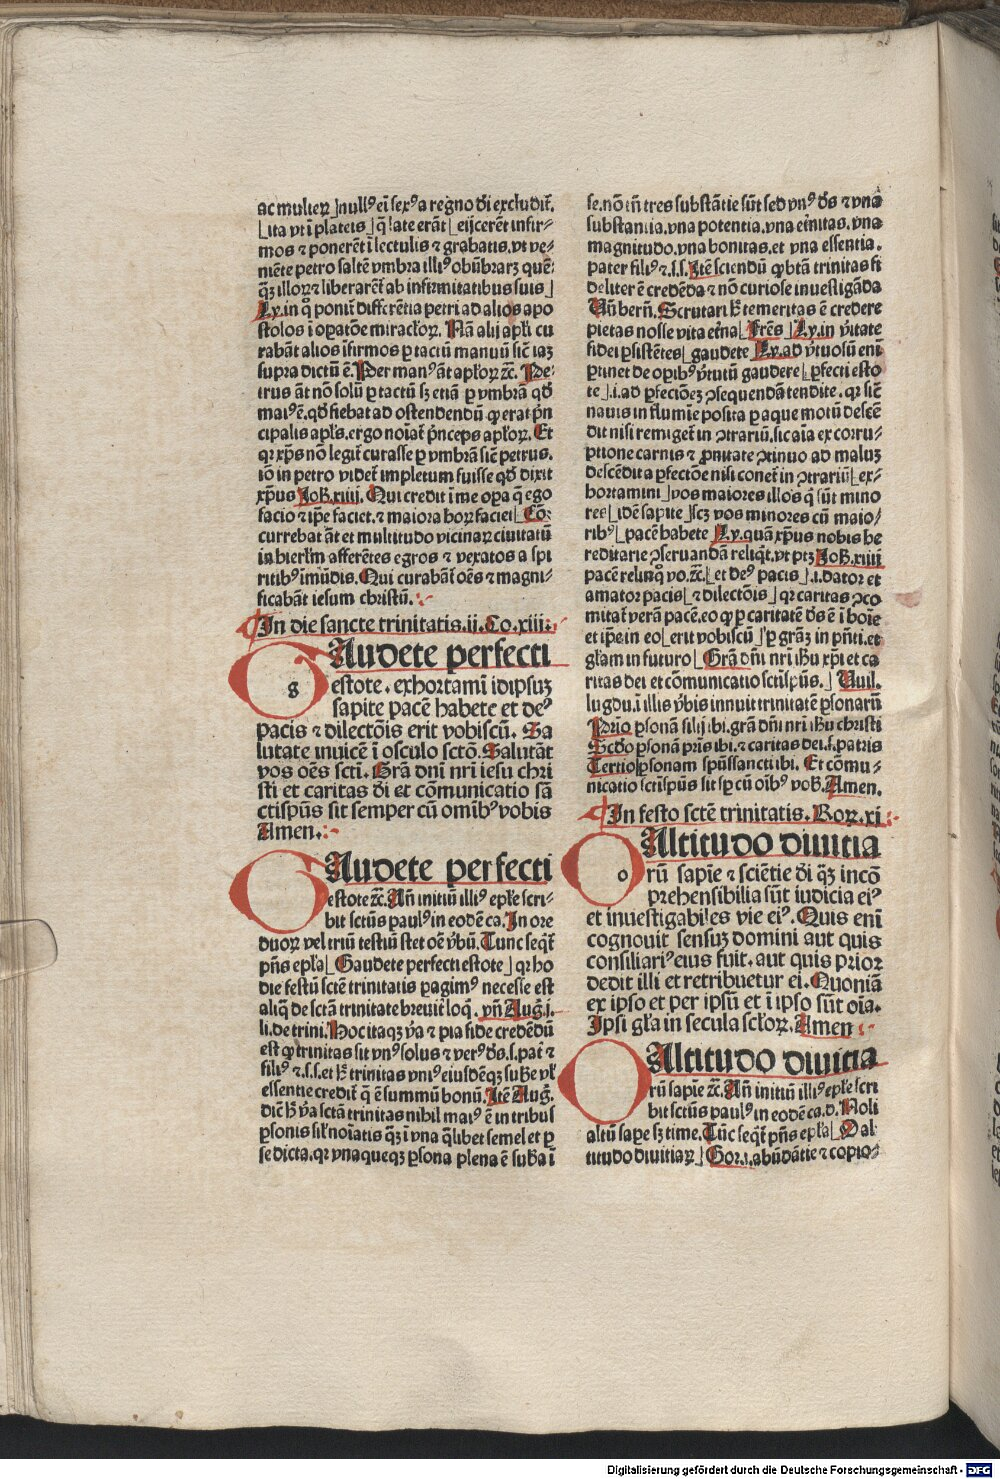 ac mulieꝝ ⌋nullꝰ ei̅ sexꝰ a regno di̅ excludit̅.
⌊ita vt i̅ plateis⌋ q̅ late erāt ⌊eijcerēt infir⸗
mos ⁊ ponerēt i̅ lectulis ⁊ grabatis.vt ve⸗
niēte petro saltē vmbra illiꝰ obūbraꝝ quē⸗
q̅ꝫ illoꝝ ⁊ liberarēt̄ ab infirmitatibus suis⌋
Ly.in q̊ ponit̄ differētia petri ad alios apo
stolos i̅ opatōe miracl̄oꝝ. Nā alij apl̄i cu
rabāt alios i̅firmos ꝑ tactū manuū sic̄ iaꝫ
supra dictū ē. Per manꝰ āt apl̄oꝝ ⁊c̄. Pe⸗
trus āt nō solū ꝑ tactū sꝫ etiā ꝑ vmbrā qd̄
maiꝰ ē.qd̄ fiebat ad ostendendū ꝙ erat p̄n
cipalis apl̄s.ergo noiat̄ p̄nceps apl̄oꝝ. Et
qꝛ xp̄s nō legit̄ curasse ꝑ vmbrā sic̄ petrus.
iō in petro videt̄ impletum fuisse qd̄ dixit
xp̄us Joh̄.xiiij. Qui credit i̅ me oꝑa q̄ ego
facio ⁊ ip̄e faciet.⁊ maiora hoꝝ faciet⌊ Cō⸗
currebat āt et multitudo vicinaꝝ ciuitatū
in hierl̄m afferētes egros ⁊ vexatos a spi
ritibꝰ imūdis. Qui curabāt̄ oēs ⁊ magni⸗
ficabāt iesum christū.
In die sancte trinitatis.ii.Co.xiii.
GAudete perfecti
estote. exhortami̅ idipsuꝫ
sapite pacē habete et deꝰ
pacis ⁊ dilectōis erit vobiscū. Sa
lutate inuicē i̅ osculo sctō. Salutāt
vos oēs scti̅. Grā dn̄i nr̄i iesu chri
sti et caritas di̅ et cōmunicatio sā
ctispūs sit semper cū omibꝰ vobis
Amen.
GAudete perfecti
estote ⁊c̄. Añ initiū illiꝰ epl̄e scri⸗
bit sctūs paulꝰ in eodē ca. In ore
duoꝝ vel triū testiū stet oē v̄bū. Tunc seq̄t̄
pn̄s epl̄a⌊ Gaudete perfecti estote⌋ qꝛ ho
die festū sctē trinitatis ꝑagimꝰ necesse est
aliq̄ de sctā trinitate breuit̄ loq̄. vn̄ Auḡ.j.
li.de trini. Hoc itaqꝫ v̄a ⁊ pia fide credēdū
est ꝙ trinitas sit vnꝰ solus ⁊ verꝰ d̄s.s.pat̄ ⁊
filiꝰ ⁊.s.s.et h̄ trinitas vniꝰ eiusdēqꝫ sub̄e vl̄
essentie credit̄ q̄ ē summū bonū. Itē Auḡ.
dic̄ h̄ v̄a sctā trinitas nihil maiꝰ ē in tribus
ꝑsonis sil̄ noiatis q̄ꝫ i̅ vna q̄libet semel et ꝑ
se dicta.qꝛ vnaqueqꝫ ꝑsona plena ē sub̄a i̅
se.nō tn̄ tres substātie sūt sed vnꝰ d̄s ⁊ vna
substantia.vna potentia.vna et̄nitas.vna
magnitudo.vna bonitas.et vna essentia.
pater filiꝰ ⁊.s.s. Itē sciendū ꝙ btā trinitas fi
deliter ē credēda ⁊ nō curiose inuestigāda
Vn̄ bern̄. Scrutari h̄ temeritas ē credere
pietas nosse vita et̄na⌊ Fr̄es⌋ Ly.in v̄itate
fidei ꝑsistētes⌊ gaudete⌋ Ly.ad v̄tuosū eni̅
ꝑtinet de oꝑibꝰ v̄tutū gaudere⌊ ꝑfecti esto
te⌋.i.ad ꝑfectiōeꝫ ꝯsequendā tendite.qꝛ sic̄
nauis in flumi̅e posita ꝑ aque motū descē
dit nisi remiget̄ in ꝯtrariū.sic aia ex corru⸗
ptione carnis ⁊ ꝓnitate ꝯtinuo ad maluꝫ
descēdit a ꝑfectōe nisi conet̄ in ꝯtrariū⌊ ex⸗
hortamini⌋ vos maiores illos q̄ sūt mino
res⌊ idē sapite⌋ scꝫ vos minores cū maio⸗
ribꝰ ⌊pacē habete⌋ Ly.quā xp̄us nobis he
reditarie ꝯseruandā reliq̄t.vt ptꝫ Joh̄.xiiii
pacē relinq̄ vo.⁊c̄.⌊et deꝰ pacis⌋.i.dator et
amator pacis⌊ ⁊ dilectōis⌋ qꝛ caritas ꝯco
mitat̄ verā pacē.eo ꝙ ꝑ caritatē d̄s ē i̅ hoi̅e
et ip̄e in eo⌊ erit vobiscū⌋ ꝑ grāꝫ in pn̄ti.et
gl̄am in futuro⌊ Grā dn̄i nr̄i ih̄u xp̄i et ca
ritas dei et cōmunicatio sctispūs.⌋ Wil.
lugdu.i̅ illis v̄bis innuit trinitatē ꝑsonarū
Prio ꝑsonā filij ibi.grā dn̄i nr̄i ih̄u christi
Scd̄o ꝑsonā pr̄is ibi.⁊ caritas dei.s.patris
Tertio ꝑsonam spūssancti ibi. Et cōmu⸗
nicatio sctispūs sit sꝑ cū oi̅bꝰ vob̄. Amen.
In festo sctē trinitatis. Roꝝ.xi
OAltitudo diuitia
rū sapie̅ ⁊ sciētie di̅ q̄ꝫ incō
prehensibilia sūt iudicia eiꝰ
et inuestigabiles vie eiꝰ. Quis eni̅
cognouit sensuꝫ domini aut quis
consiliariꝰ eius fuit. aut quis prior
dedit illi et retribuetur ei. Quoniā
ex ipso et per ipsū et i̅ ipso sūt oi̅a.
Ipsi gl̄a in secula scl̄oꝝ. Amen
OAltitudo diuitia
rū sapie̅ ⁊c̄. Añ initiū illiꝰ epl̄e scri
bit sctūs paulꝰ in eodē ca.d. Noli
altū saꝑe sꝫ time. Tūc seq̄t̄ pn̄s epl̄a⌊ O al
titudo diuitiaꝝ⌋ Gor.i.abūdātie ⁊ copio⸗
Digitalisierung gefördert durch die Deutsche Forschungsgemeinschaft - DFG